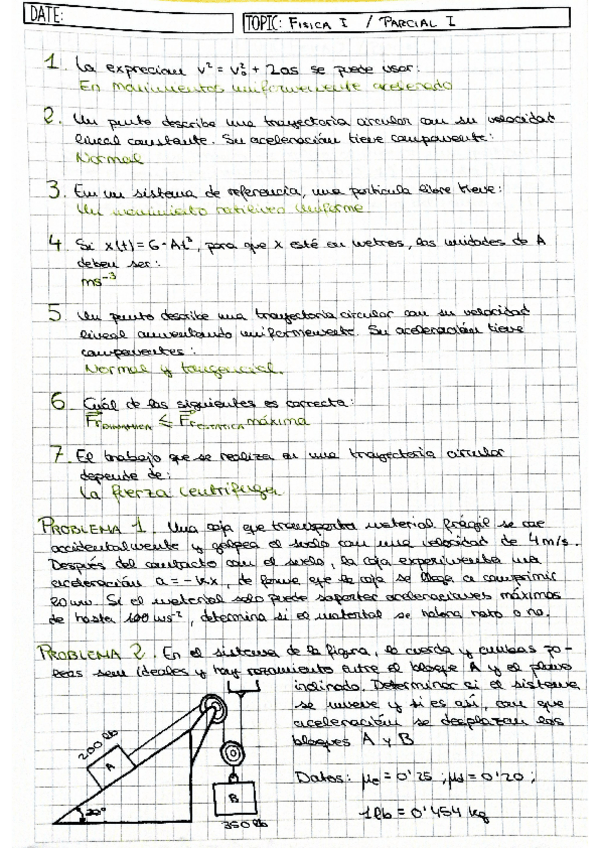 DATE:
TOPIC: FISICA I / PARCIAL I
1. La expresion v² = v₀² + 2as se puede usar:
En movimientos uniformemente acelerado
2. Un punto describe una trayectoria circular con su velocidad
lineal constante. Su aceleración tiene componente:
Normal
3. En un sistema de referencia, una partícula libre tiene:
Un movimiento rectilíneo uniforme
4. Si x(t) = 6 - At³, para que x esté en metros, las unidades de A
deben ser:
ms⁻³
5. Un punto describe una trayectoria circular con su velocidad
lineal aumentando uniformemente. Su aceleración tiene
componentes:
Normal y tangencial.
6. Cuál de las siguientes es correcta:
Fr DINAMICA ≤ Fr ESTATICA máxima
7. El trabajo que se realiza en una trayectoria circular
depende de:
La fuerza centrífuga
PROBLEMA 1. Una caja que transporta material frágil se cae
accidentalmente y golpea el suelo con una velocidad de 4 m/s.
Después del contacto con el suelo, la caja experimenta una
aceleración a = -kx, de forma que la caja se llega a comprimir
20 mm. Si el material solo puede soportar aceleraciones máximas
de hasta 100 ms⁻², determina si el material se habrá roto o no.
PROBLEMA 2. En el sistema de la figura, la cuerda y ambas po-
leas son ideales y hay rozamiento entre el bloque A y el plano
inclinado. Determinar si el sistema
se mueve y si es así, con que
aceleración se desplazan los
bloques A y B
Datos: μe = 0'25 ; μd = 0'20 ;
1 lb = 0'454 kg
200 lb
A
B
350 lb